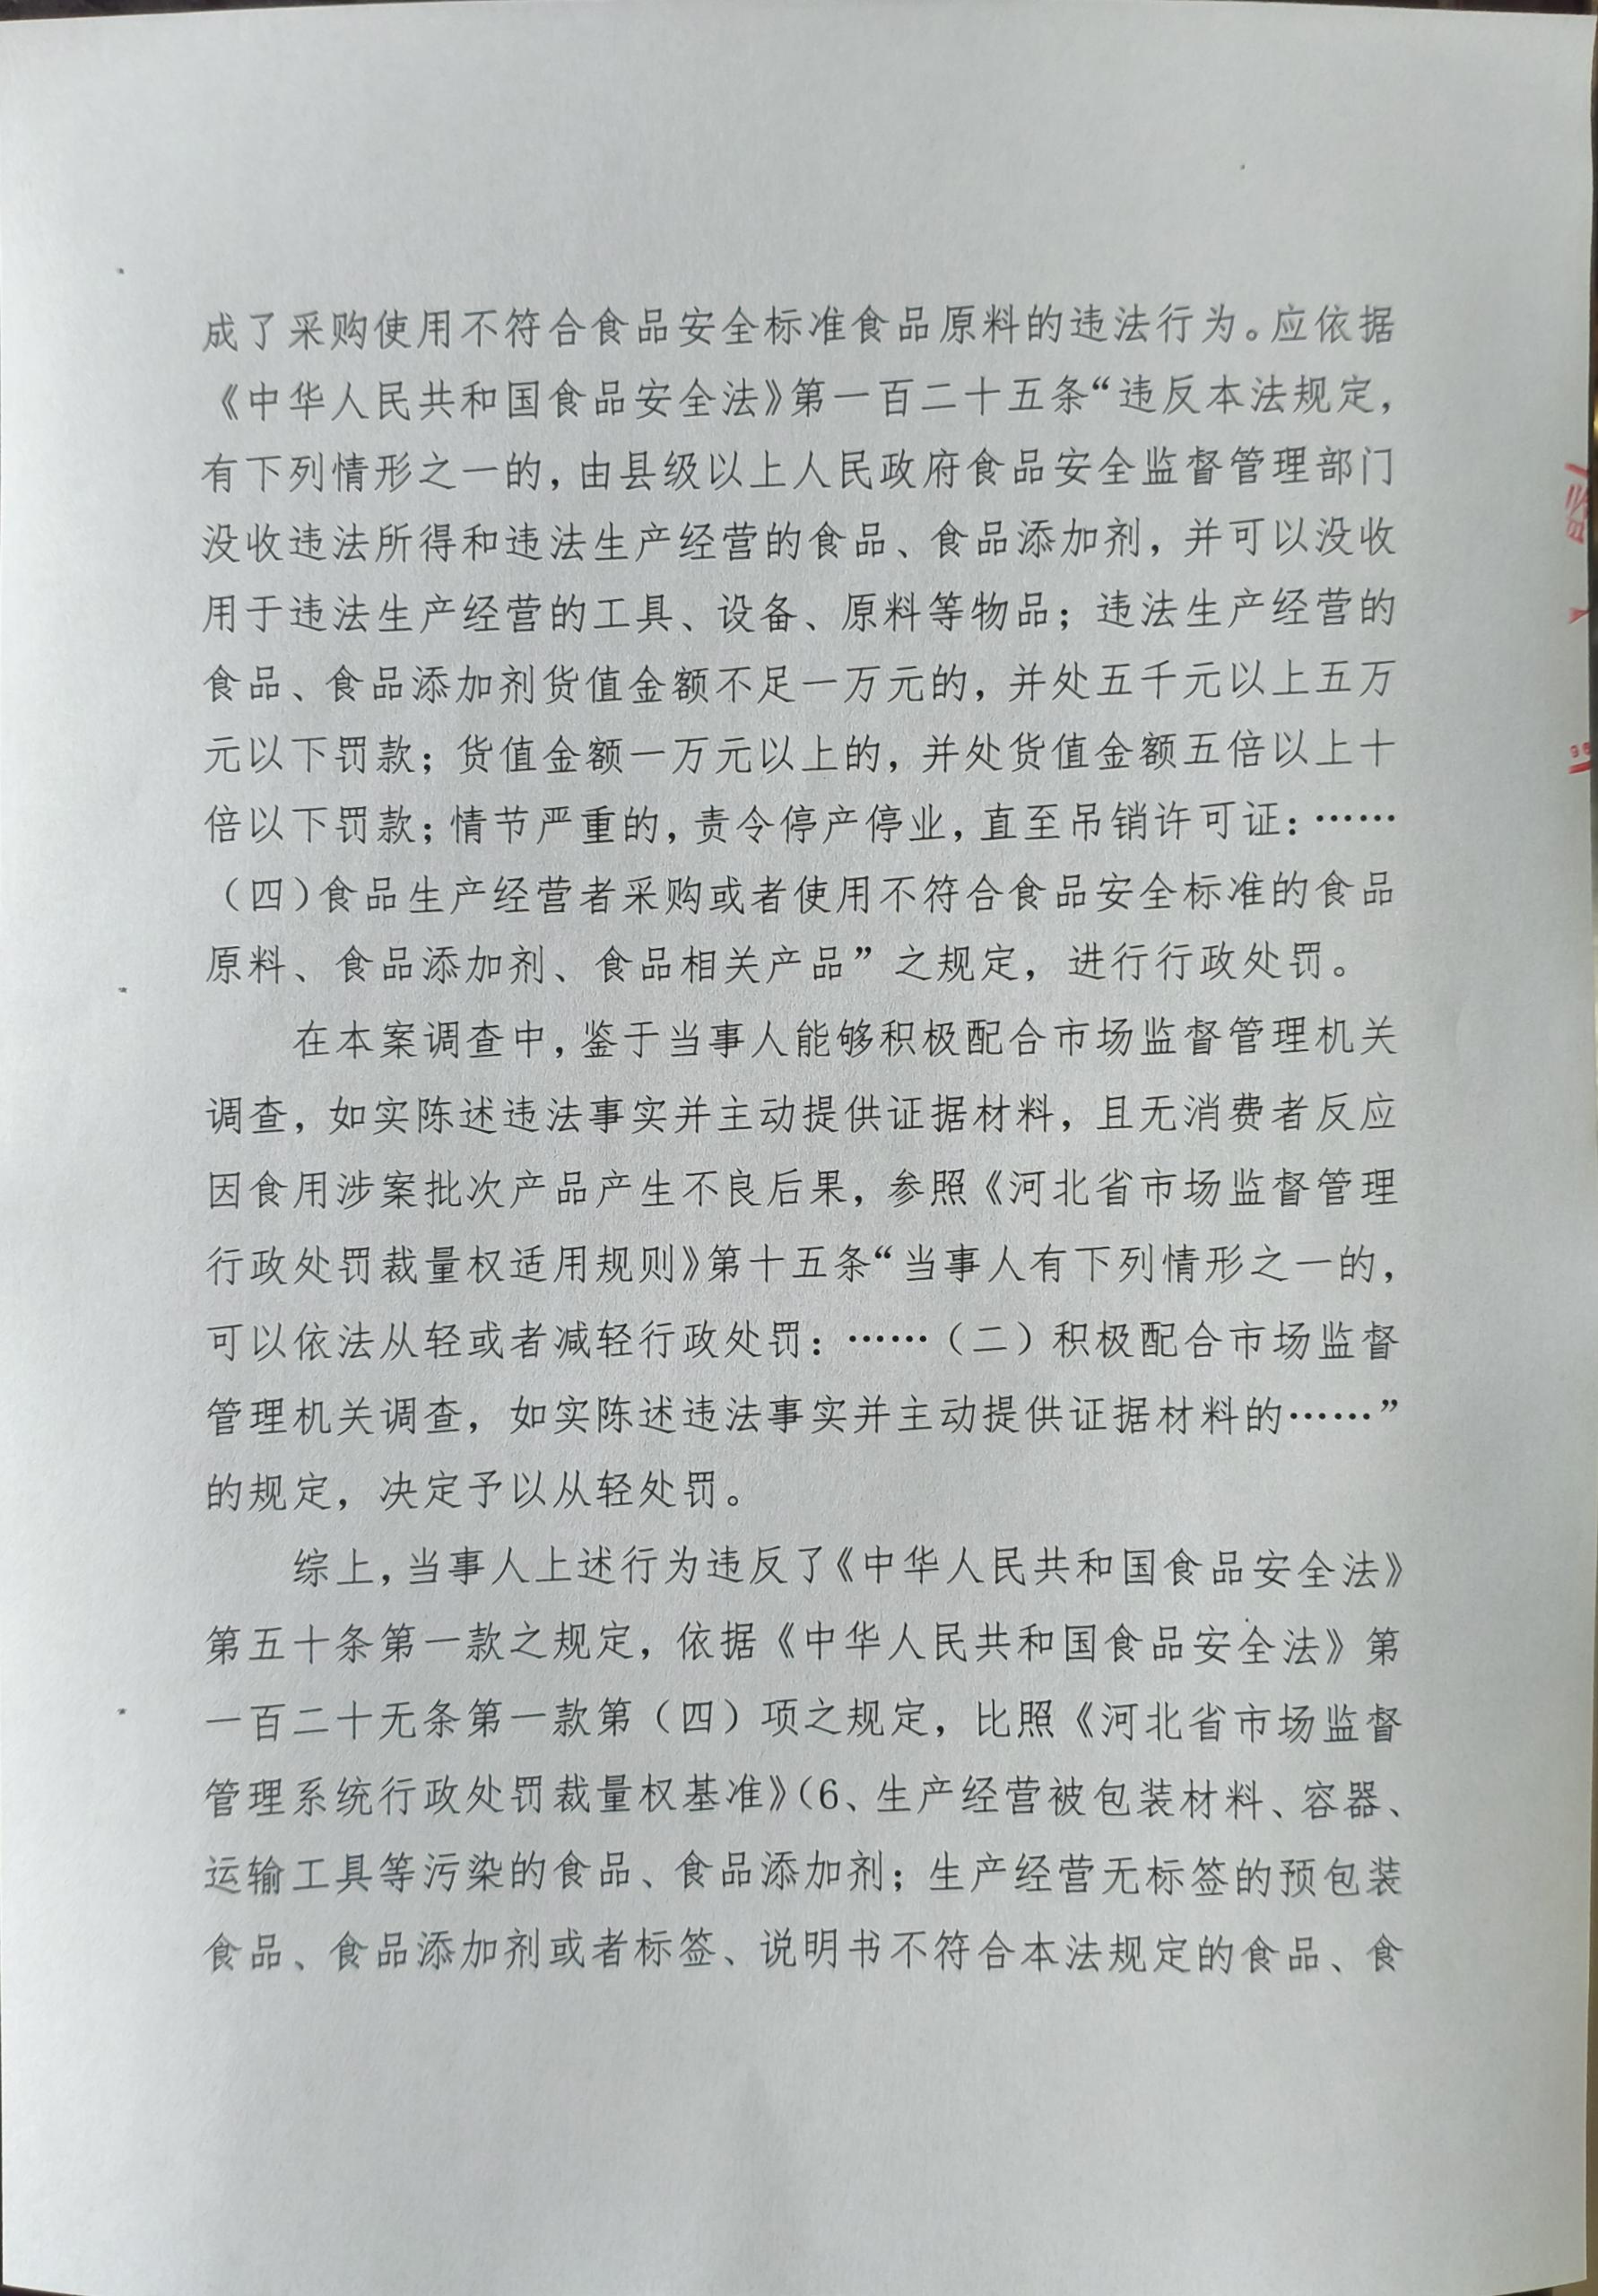 成了采购使用不符合食品安全标准食品原料的违法行为。应依据
《中华人民共和国食品安全法》第一百二十五条“违反本法规定，
有下列情形之一的，由县级以上人民政府食品安全监督管理部门
没收违法所得和违法生产经营的食品、食品添加剂，并可以没收
用于违法生产经营的工具、设备、原料等物品；违法生产经营的
食品、食品添加剂货值金额不足一万元的，并处五千元以上五万
元以下罚款；货值金额一万元以上的，并处货值金额五倍以上十
倍以下罚款；情节严重的，责令停产停业，直至吊销许可证：……
（四）食品生产经营者采购或者使用不符合食品安全标准的食品
原料、食品添加剂、食品相关产品”之规定，进行行政处罚。
在本案调查中，鉴于当事人能够积极配合市场监督管理机关
调查，如实陈述违法事实并主动提供证据材料，且无消费者反应
因食用涉案批次产品产生不良后果，参照《河北省市场监督管理
行政处罚裁量权适用规则》第十五条“当事人有下列情形之一的，
可以依法从轻或者减轻行政处罚：……（二）积极配合市场监督
管理机关调查，如实陈述违法事实并主动提供证据材料的……”
的规定，决定予以从轻处罚。
综上，当事人上述行为违反了《中华人民共和国食品安全法》
第五十条第一款之规定，依据《中华人民共和国食品安全法》第
一百二十无条第一款第（四）项之规定，比照《河北省市场监督
管理系统行政处罚裁量权基准》（6、生产经营被包装材料、容器、
运输工具等污染的食品、食品添加剂；生产经营无标签的预包装
食品、食品添加剂或者标签、说明书不符合本法规定的食品、食